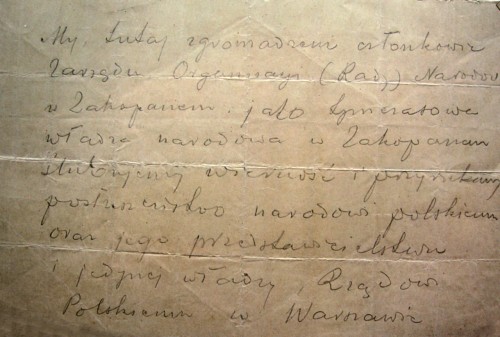 My, tutaj zgromadzeni członkowie
Zarządu Organizacyi (Rady) Narodow
w Zakopanem, jako tymczasowa
władza narodowa w Zakopanem
ślubujemy wierność i przyrzekamy
posłuszeństwo narodowi polskiemu
oraz jego przedstawicielstwu
i jedynej władzy, Rządowi
Polskiemu w Warszawie